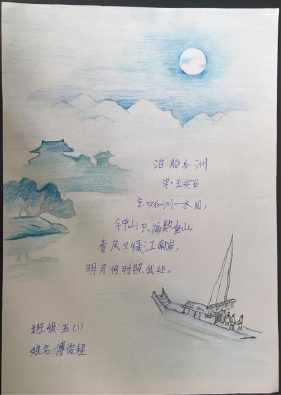 泊船瓜洲
宋·王安石
京口瓜洲一水间,
钟山只隔数重山
春风又绿江南岸,
明月何时照我还。
班级:五(1)
姓名: